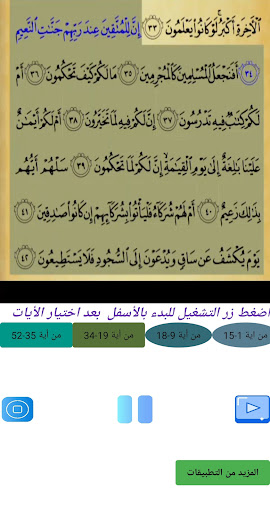 ٱلْأَخِرَةِ أَكْبَرُ لَوْ كَانُوا۟ يَعْلَمُونَ ٣٣ إِنَّ لِلْمُتَّقِينَ عِندَ رَبِّهِمْ جَنَّٰتِ ٱلنَّعِيمِ
٣٤ أَفَنَجْعَلُ ٱلْمُسْلِمِينَ كَٱلْمُجْرِمِينَ ٣٥ مَا لَكُمْ كَيْفَ تَحْكُمُونَ ٣٦ أَمْ
لَكُمْ كِتَٰبٌ فِيهِ تَدْرُسُونَ ٣٧ إِنَّ لَكُمْ فِيهِ لَمَا تَخَيَّرُونَ ٣٨ أَمْ لَكُمْ أَيْمَٰنٌ
عَلَيْنَا بَٰلِغَةٌ إِلَىٰ يَوْمِ ٱلْقِيَٰمَةِ إِنَّ لَكُمْ لَمَا تَحْكُمُونَ ٣٩ سَلْهُمْ أَيُّهُم
بِذَٰلِكَ زَعِيمٌ ٤٠ أَمْ لَهُمْ شُرَكَآءُ فَلْيَأْتُوا۟ بِشُرَكَآئِهِمْ إِن كَانُوا۟ صَٰدِقِينَ ٤١
يَوْمَ يُكْشَفُ عَن سَاقٍ وَيُدْعَوْنَ إِلَى ٱلسُّجُودِ فَلَا يَسْتَطِيعُونَ ٤٢
اضغط زر التشغيل للبدء بالأسفل بعد اختيار الأيات
من آية 1-15 من آية 9-18 من آية 19-34 من آية 35-52
المزيد من التطبيقات